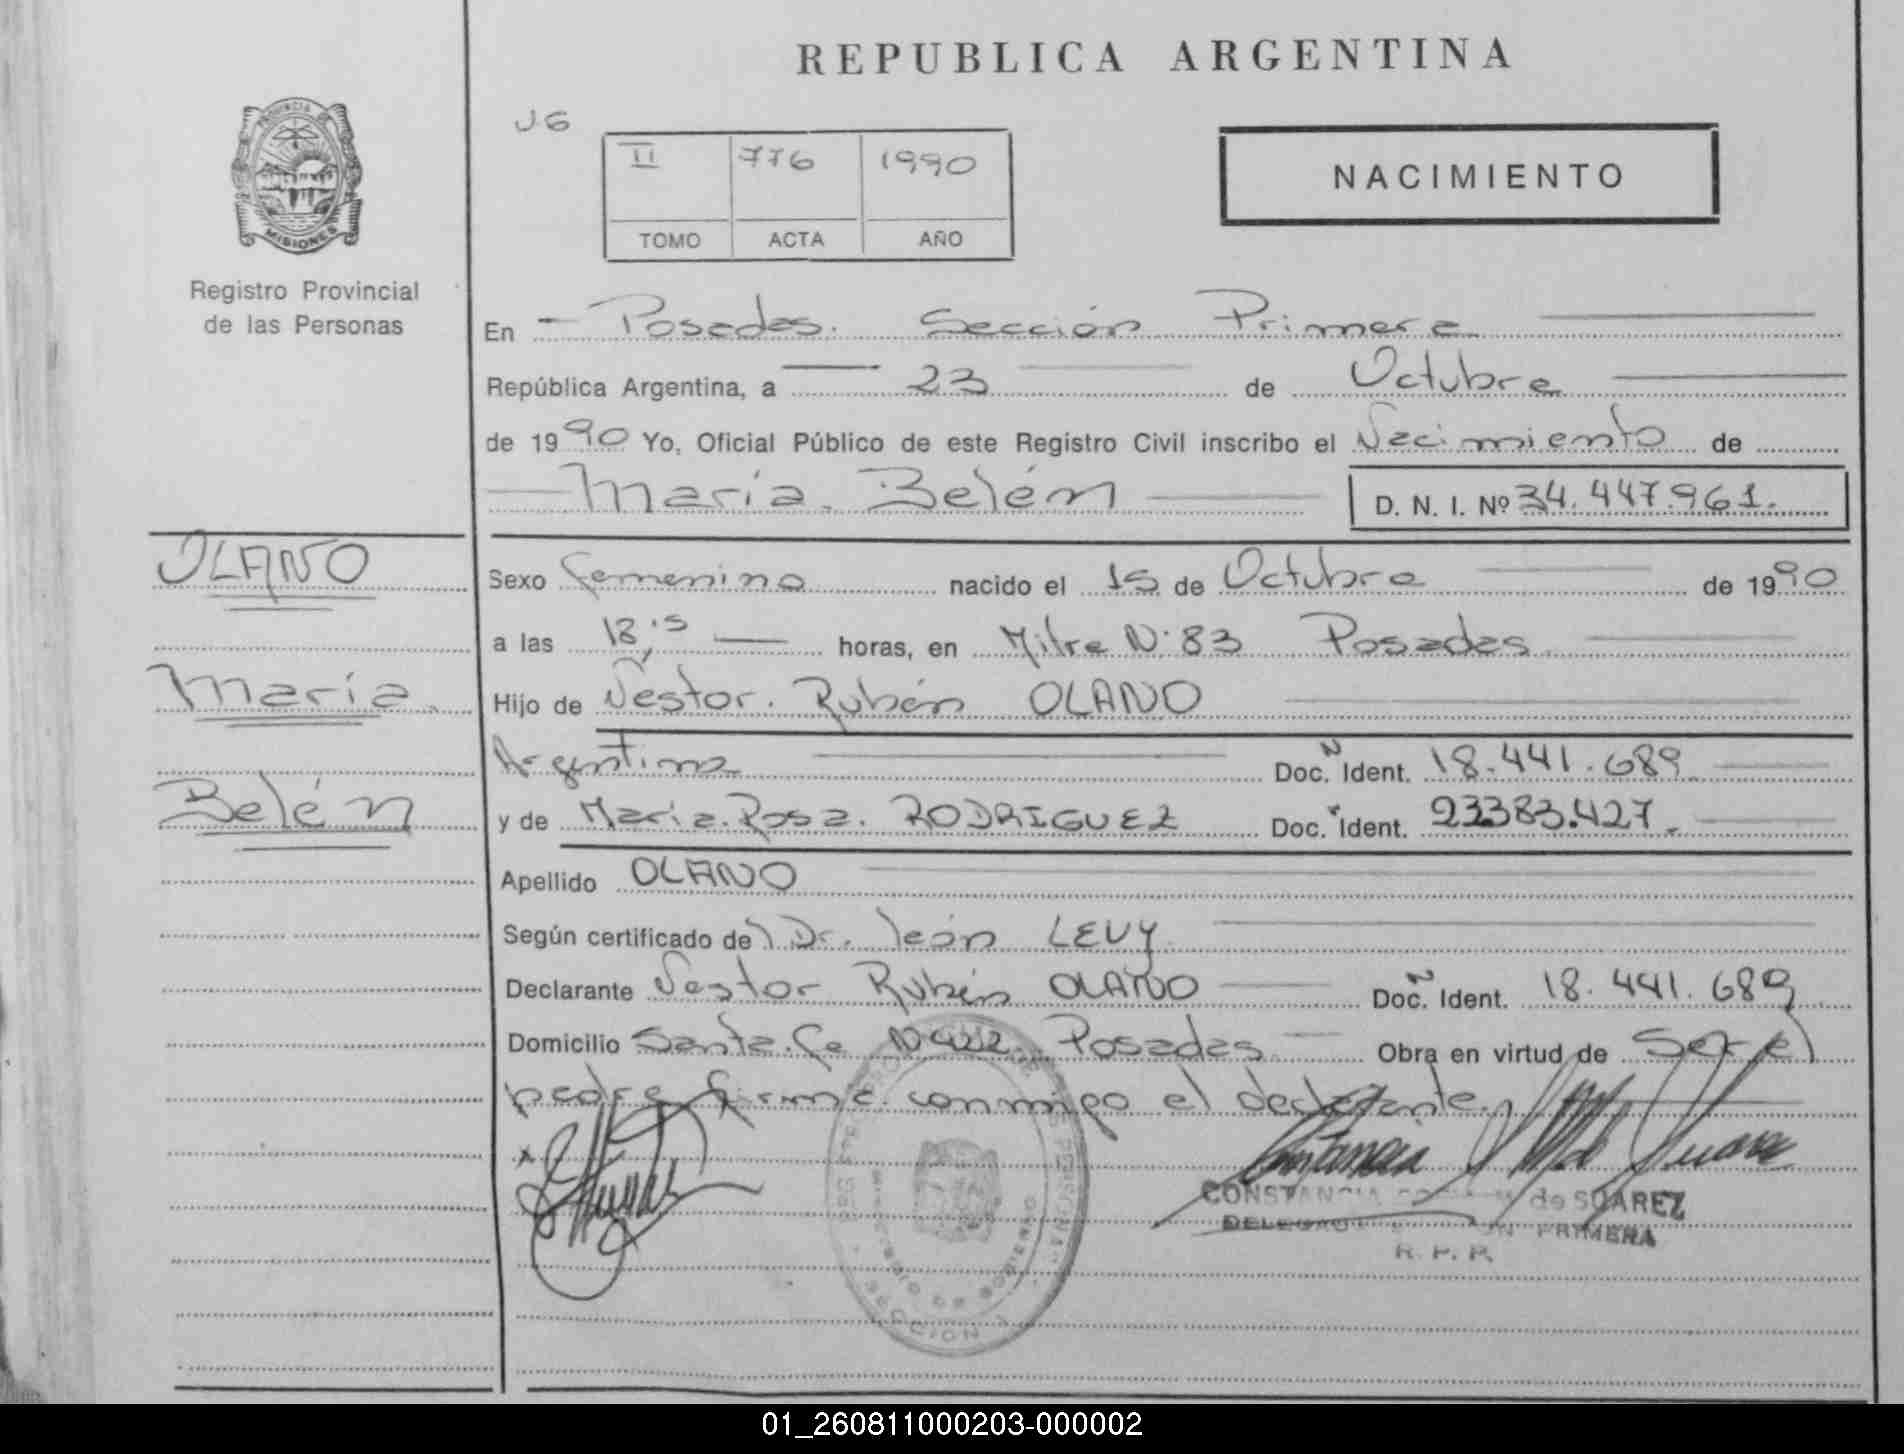 REPUBLICA ARGENTINA
PROVINCIA DE
MISIONES
Registro Provincial
de las Personas
JG
II 776 1990
TOMO ACTA AÑO
NACIMIENTO
En Posadas. Sección Primera
República Argentina, a 23 de Octubre
de 1990 Yo, Oficial Público de este Registro Civil inscribo el Nacimiento de
María Belén D. N. I. Nº 34.447.961.
OLANO
María
Belén
Sexo femenino nacido el 15 de Octubre de 1990
a las 18,15 horas, en Mitre N° 83 Posadas
Hijo de Néstor Rubén OLANO
Argentino Doc. Ident. 18.441.689
y de María Rosa RODRIGUEZ Doc. Ident. 22383.427.
Apellido OLANO
Según certificado del Dr. león LEVY
Declarante Nestor Rubén OLANO Doc. Ident. 18.441.689
Domicilio Santa fe Nº Posadas Obra en virtud de Ser el
padre firma conmigo el declarante.
CONSTANCIA de SUAREZ
PRIMERA
R. P. P.
SECCION
01_260811000203-000002